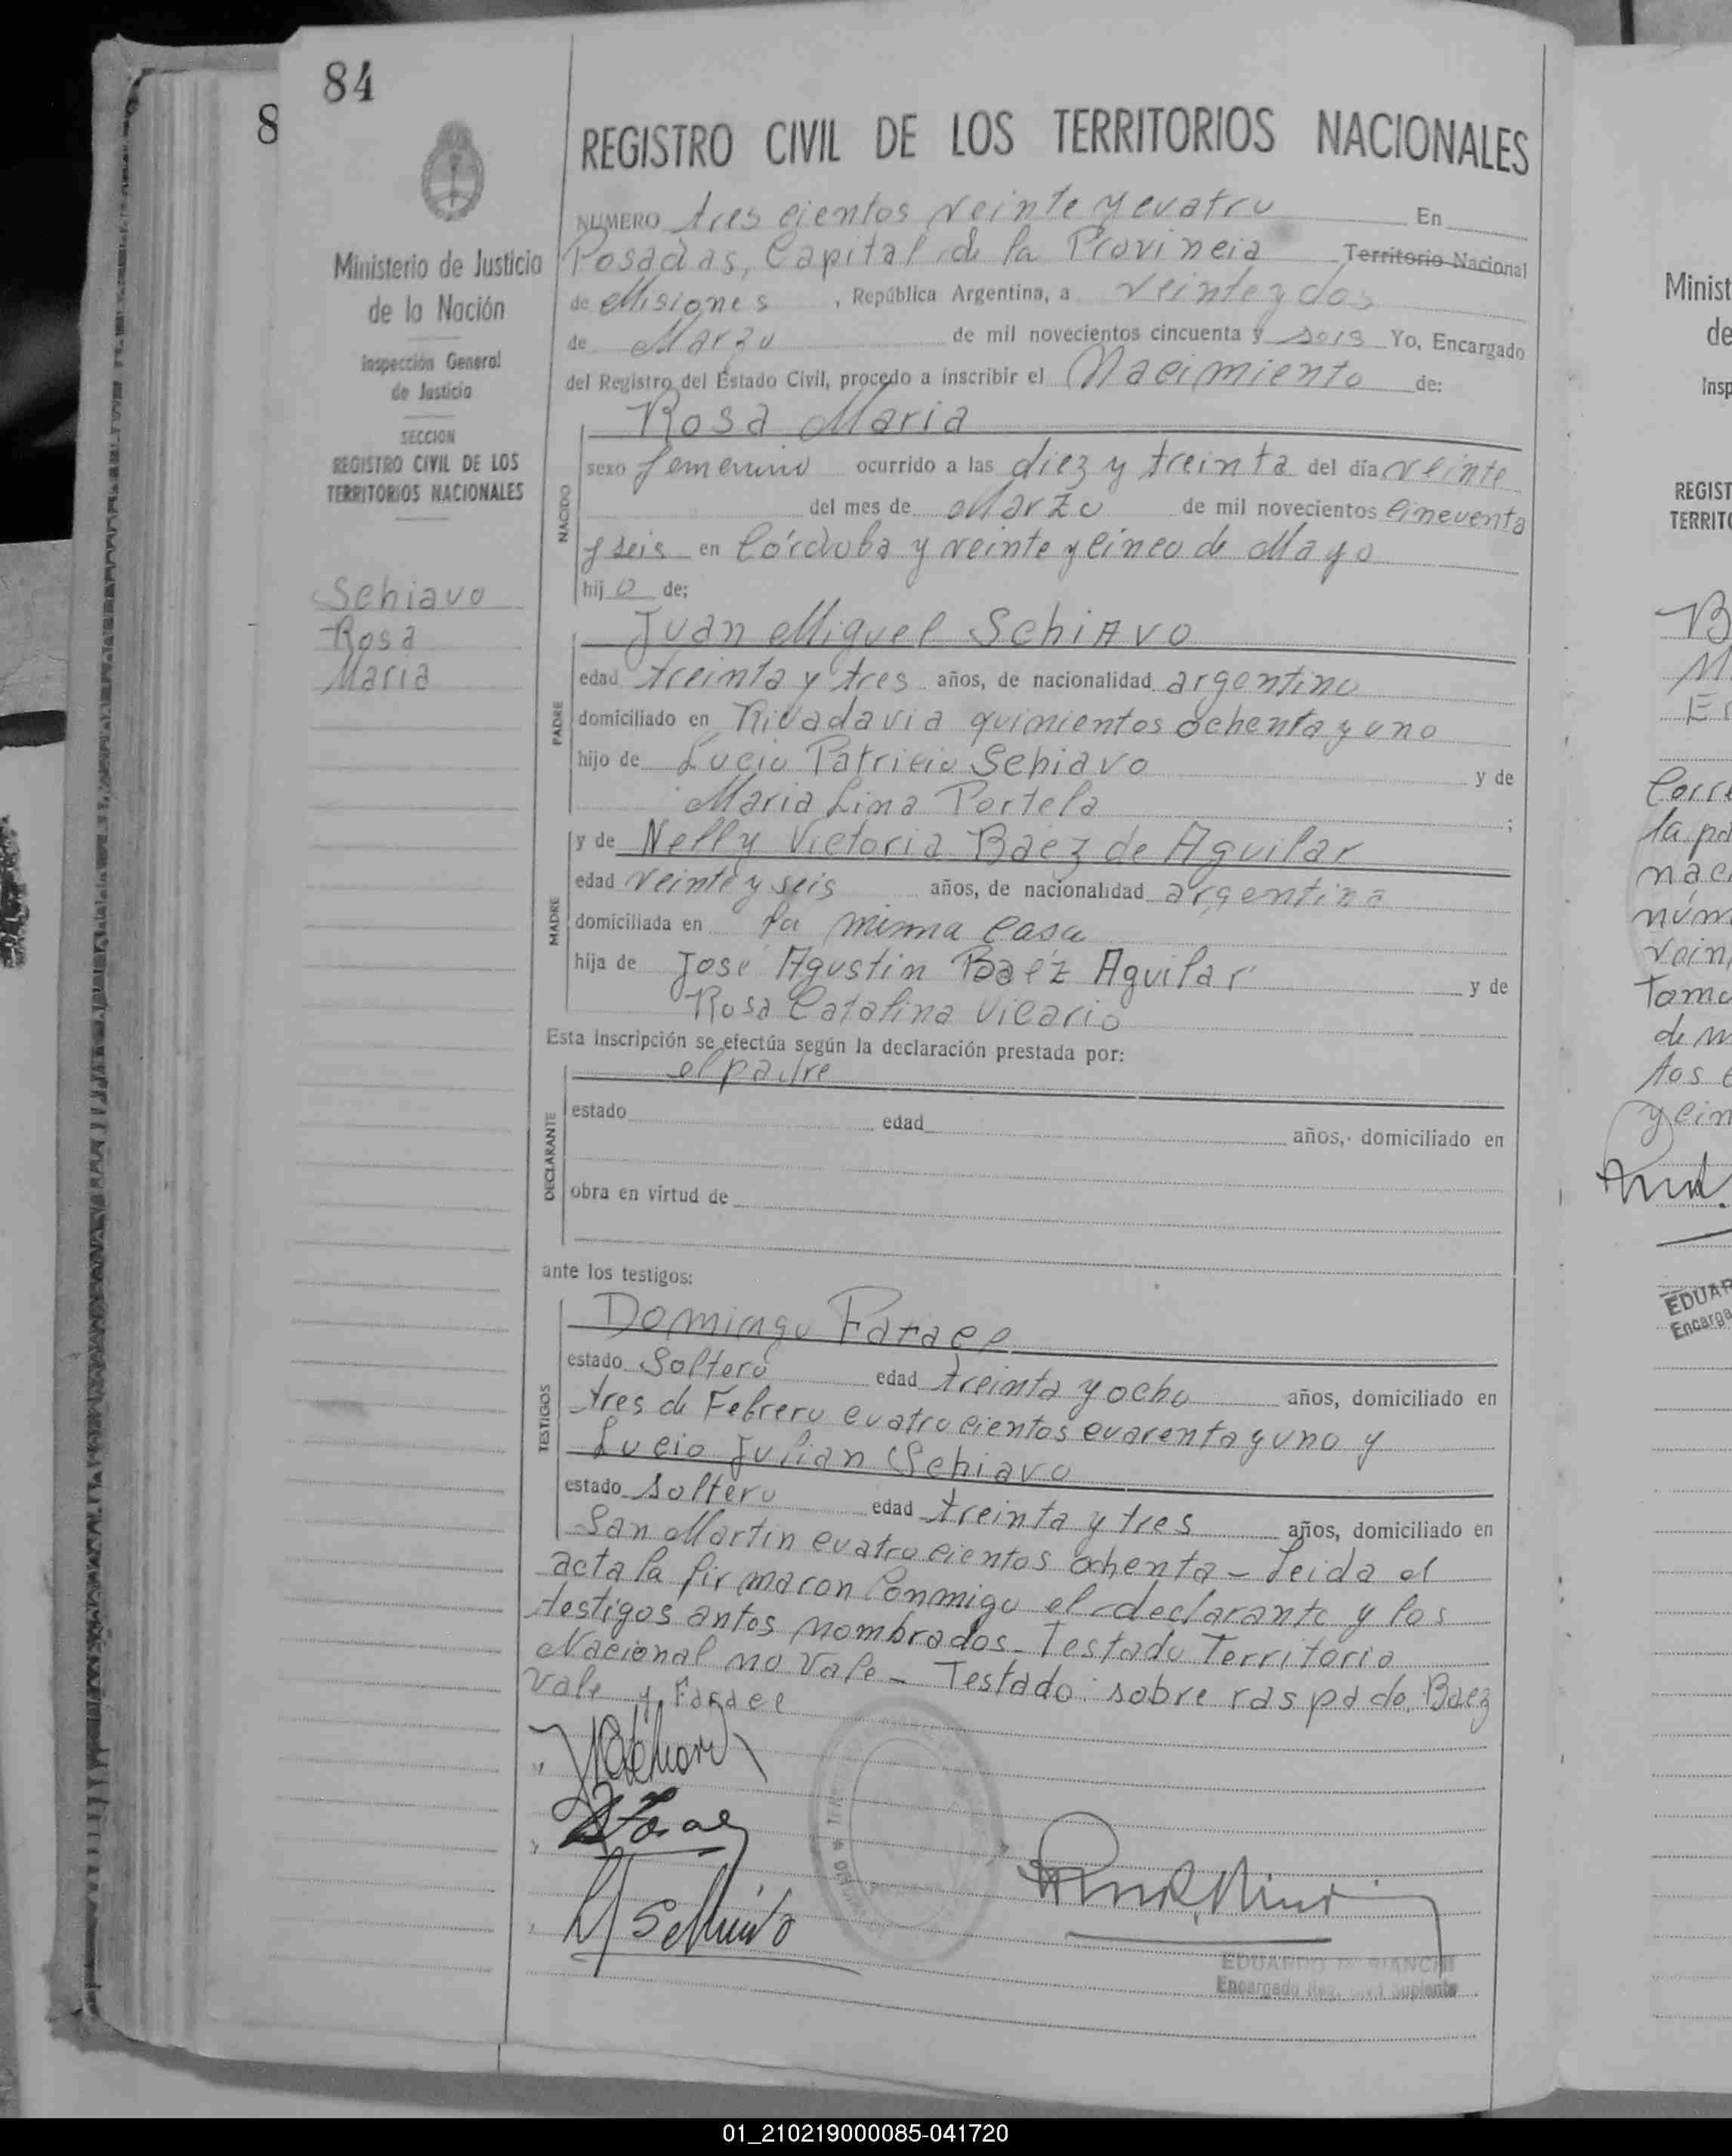 84
8
REGISTRO CIVIL DE LOS TERRITORIOS NACIONALES
Ministerio de Justicia
de la Nación
Inspección General
de Justicia
SECCION
REGISTRO CIVIL DE LOS
TERRITORIOS NACIONALES
Schiavo
Rosa
Maria
NUMERO tres cientos veinte y cuatro En
Posadas, Capital de la Provincia Territorio Nacional
de Misiones, República Argentina, a veinte y dos
de Marzo de mil novecientos cincuenta y seis Yo, Encargado
del Registro del Estado Civil, procedo a inscribir el Nacimiento de:
NACIDO
Rosa Maria
sexo femenino ocurrido a las diez y treinta del día veinte
del mes de Marzo de mil novecientos cincuenta
y seis en Córdoba y veinte y cinco de Mayo
hijo de;
PADRE
Juan Miguel SchiAvo
edad treinta y tres años, de nacionalidad argentino
domiciliado en Rivadavia quinientos ochenta y uno
hijo de Lucio Patricio Schiavo y de
Maria Lina Portela ;
MADRE
y de Nelly Victoria Baez de Aguilar
edad veinte y seis años, de nacionalidad argentina
domiciliada en la misma casa
hija de José Agustin Baéz Aguilar y de
Rosa Catalina Vicario
Esta inscripción se efectúa según la declaración prestada por:
DECLARANTE
el padre
estado edad años, domiciliado en
obra en virtud de
ante los testigos:
TESTIGOS
Domingo Farace
estado Soltero edad treinta y ocho años, domiciliado en
tres de Febrero cuatro cientos cuarenta y uno y
Lucio Julian Schiavo
estado soltero edad treinta y tres años, domiciliado en
San Martin cuatro cientos ochenta - Leida el
acta la firmaron Conmigo el declarante y los
testigos antes nombrados - Testado Territorio
Nacional no Vale - Testado sobre raspado. Baez
Vale y Farace
EDUARDO BIANCHI
Encargado Reg. Civil Suplente
Minist
de
Insp
REGIST
TERRITO
Corre
la pa
nac
núm
vein
Toma
de m
tos
y cin
EDUAR
Encarga
01_210219000085-041720